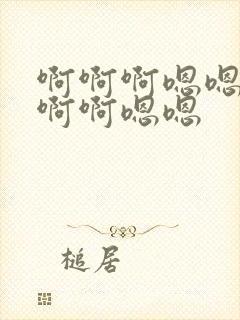 啊啊啊嗯嗯
啊啊嗯嗯
槌居